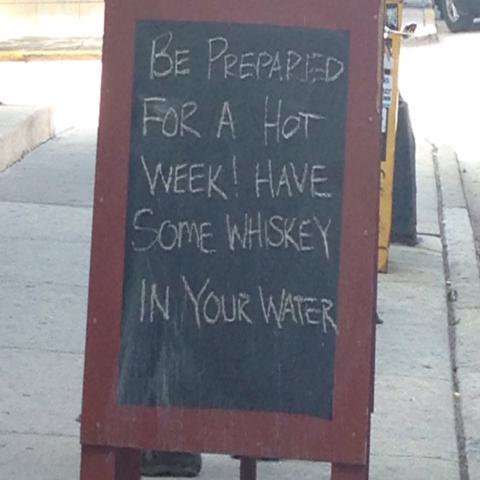 BE PREPARED
FOR A HOT
WEEK! HAVE
SOME WHISKEY
IN YOUR WATER